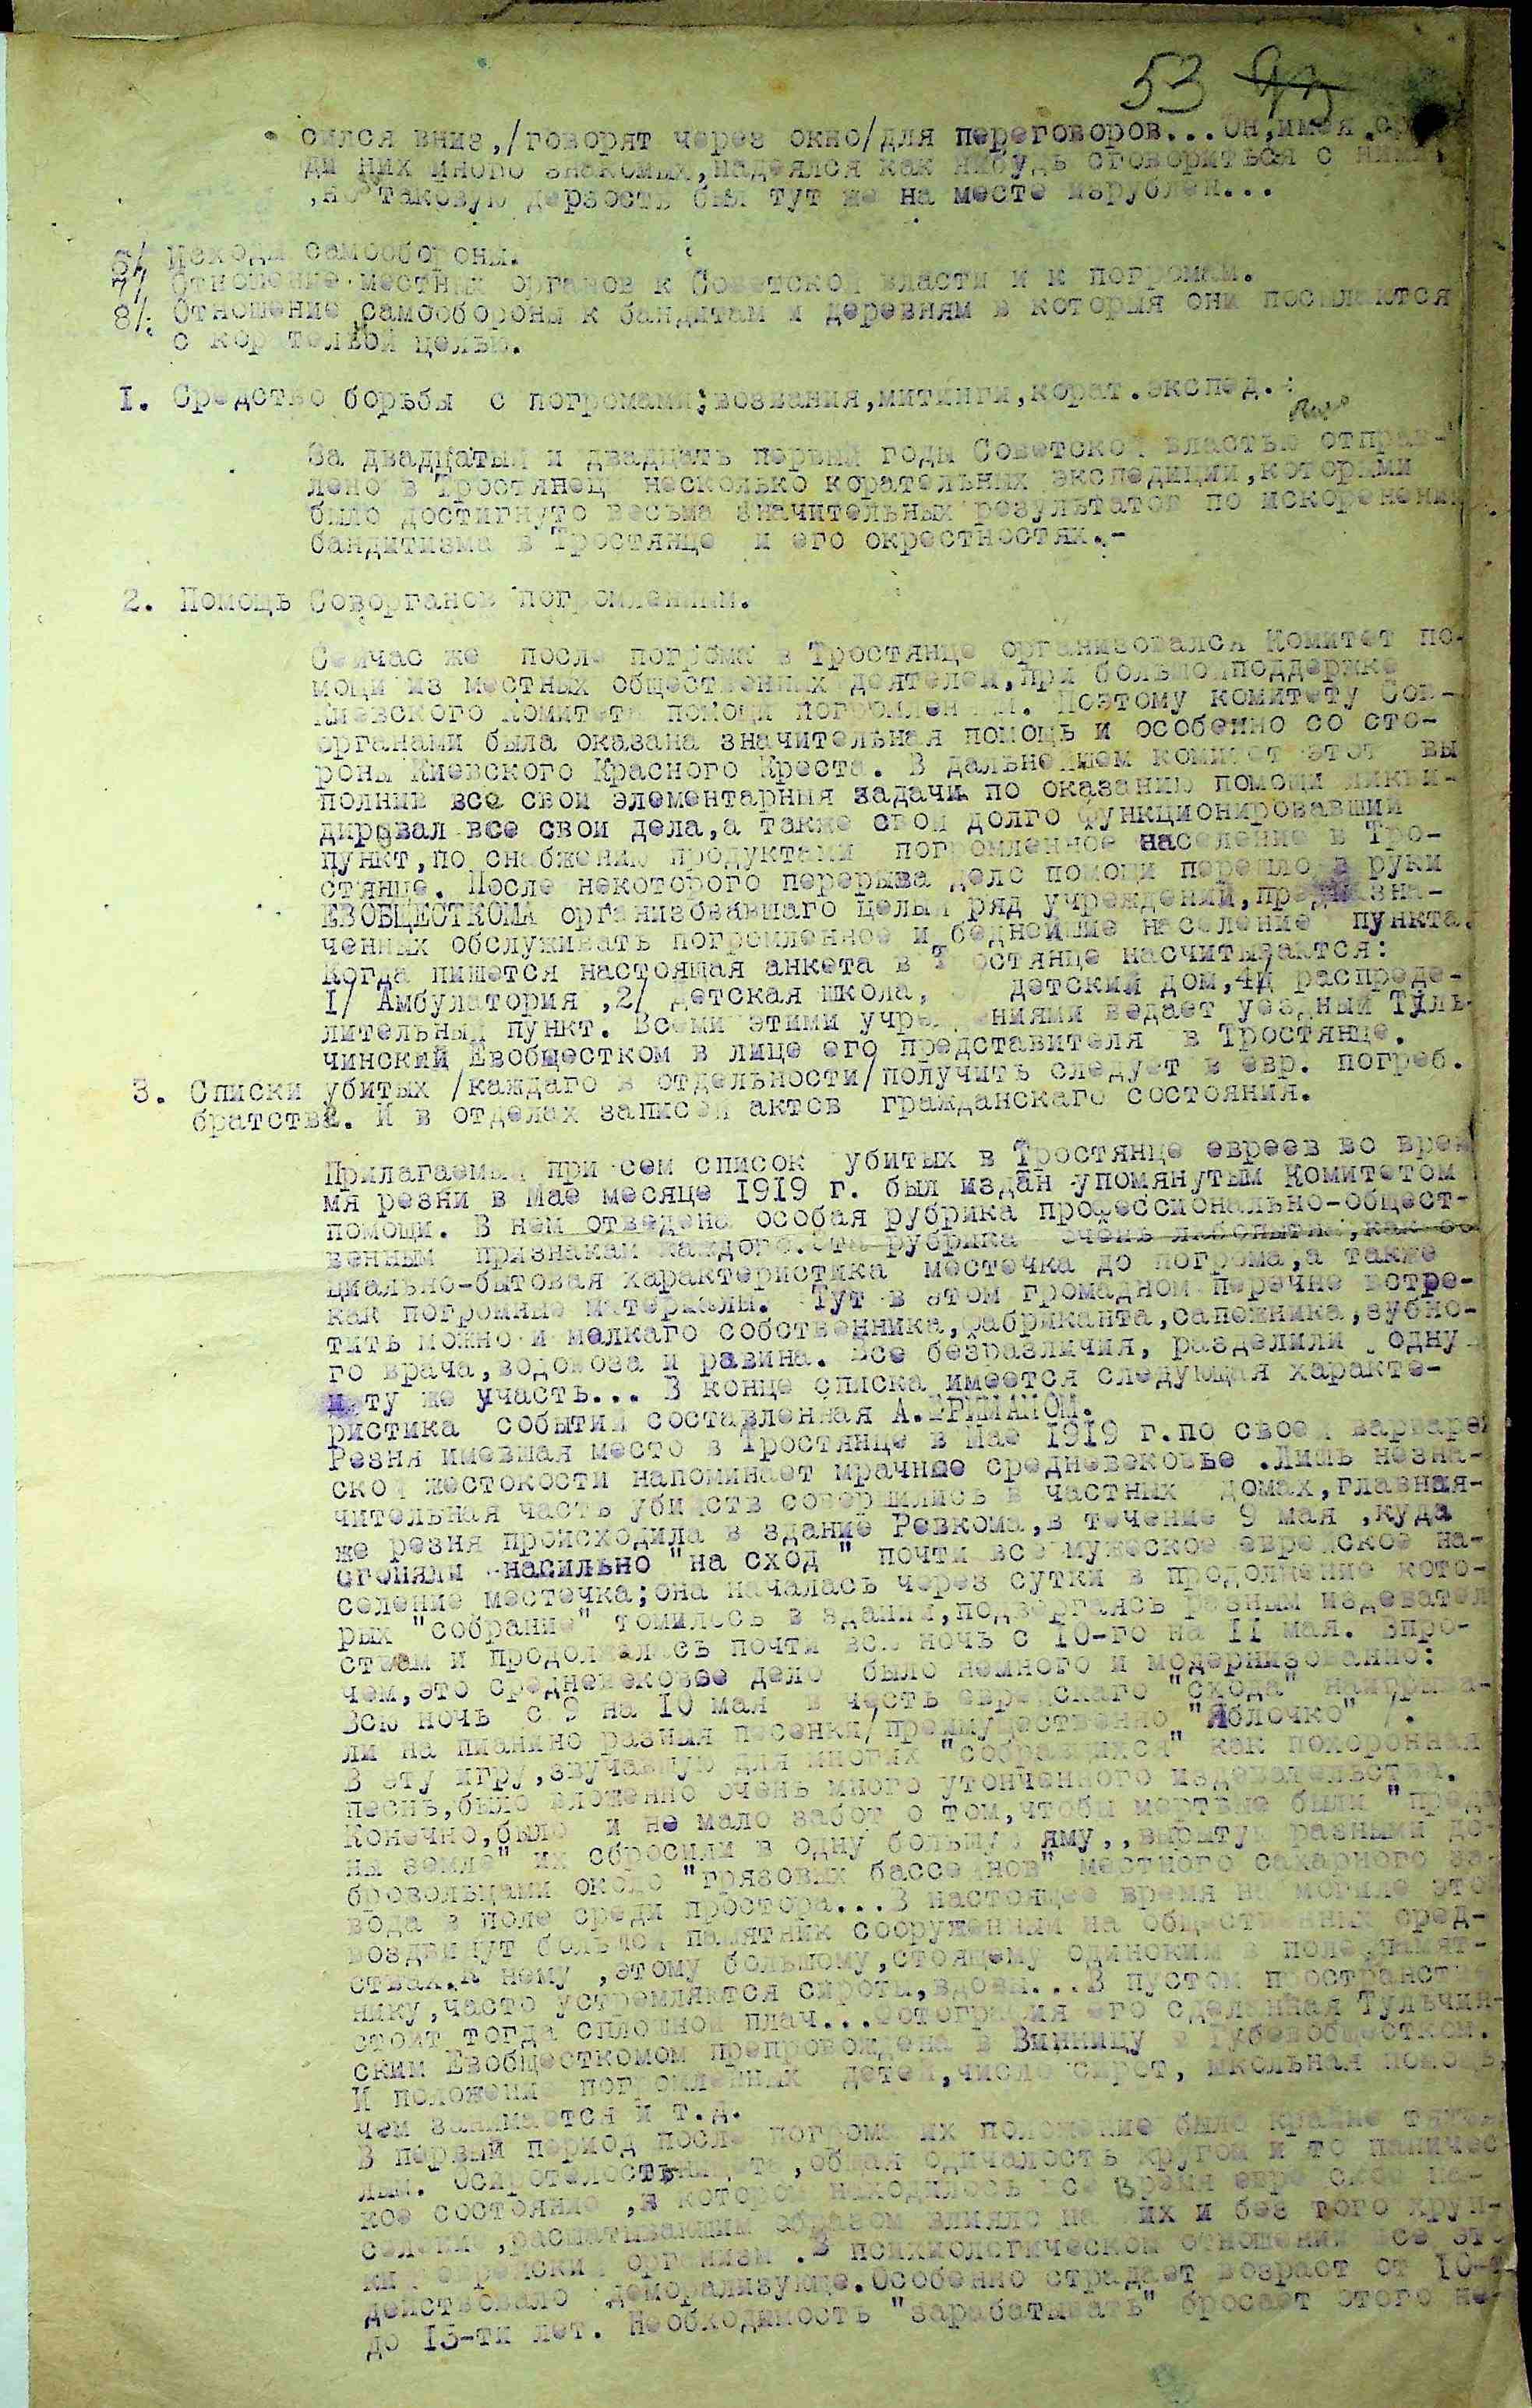 53
сился вниз,/говорят через окно/для переговоров...Он,имея ср
ди них много знакомых,надеялся как нибудь сговориться с ними,
,но таковую дерзость был тут же на месте изрублен...
6/. Исходы самообороны.
7/. Отношение местных органов к Советской власти и к погромам.
8/. Отношение самообороны к бандитам и деревням в которыя они посылаются
с корательной целью.
1. Средство борьбы с погромами;воззвания,митинги,корат.экспед.:
За двадцатый и двадцать первый годы Советской властью отправ-
лено в Тростянец несколько корательных экспедиции,которыми
было достигнуто весьма значительных результатов по искоренению
бандитизма в Тростянце и его окрестностях.-
2. Помощь Соворганов погромленным.
Сейчас же после погрома в Тростянце организовался Комитет по-
мощи из местных общественных деятелей,при большой поддержке
Киевского Комитета помощи погромленным. Поэтому комитету Сов-
органами была оказана значительная помощь и особенно со сто-
роны Киевского Красного Креста. В дальнейшем комитет этот вы
полнив все свои элементарныя задачи по оказанию помощи ликви-
дировал все свои дела,а также свой долго функционировавший
пункт,по снабжению продуктами погромленное население в Тро-
стянце. После некоторого перерыва дело помощи перешло в руки
ЕВОБЩЕСТКОМА организовавшаго целый ряд учреждений,предназна-
ченных обслуживать погромленное и беднейшие население пункта.
Когда пишется настоящая анкета в Тростянце насчитываются:
1/ Амбулатория ,2/ детская школа, детский дом,4/ распреде-
лительный пункт. Всеми этими учреждениями ведает уездный Туль-
чинский Евобщестком в лице его представителя в Тростянце.
3. Списки убитых /каждаго в отдельности/получить следует в евр. погреб.
братстве. И в отделах записей актов гражданскаго состояния.
Прилагаемый при сем список убитых в Тростянце евреев во врем
мя резни в Мае месяце 1919 г. был издан упомянутым Комитетом
помощи. В нем отведена особая рубрика профессионально-общест-
венным признакам каждого.Эта рубрика очень любопытна,как со
циально-бытовая характеристика местечка до погрома,а также
как погромные материалы. Тут в этом громадном перечне встре-
тить можно и мелкаго собственника,фабриканта,сапожника,зубно-
го врача,водовоза и равина. Все безразличия, разделили одну
и ту же участь... В конце списка имеется следующая характе-
ристика событий составленная А.ШРИМАНОМ.
Резня имевшая место в Тростянце в Мае 1919 г.по своей варварс
ской жестокости напоминает мрачные средневековье .Лишь незна-
чительная часть убийств совершились в частных домах,главная-
же резня происходила в здание Ревкома,в течение 9 мая ,куда
сгоняли насильно "на сход " почти все мужеское еврейское на-
селение местечка;она началась через сутки в продолжение кото-
рых "собрание" томилось в здании,подвергаясь разным издеватель
ствам и продолжалась почти всю ночь с 10-го на 11 мая. Впро-
чем,это средневековое дело было немного и модернизованно:
Всю ночь с 9 на 10 мая в честь еврейскаго "схода" наигрыва-
ли на пианино разныя песенки/преимущественно "Яблочко" /.
В эту игру,звучавшую для многих "собравшихся" как похоронная
песнь,было вложенно очень много утонченного издевательства.
Конечно,было и не мало забот о том,чтобы мертвые были "преда
ны земле" их сбросили в одну большую яму,,вырытую разными до-
бровольцами около "грязовых бассейнов" местного сахарного за-
вода в поле среди простора...В настоящее время на могиле этой
воздвинут большой памятник сооруженный на общественных сред-
ствах.К нему ,этому большому,стоящему одиноким в поле памят-
нику,часто устремляются сироты,вдовы...В пустом пространстве
стоит тогда сплошной плач...Фотография его сделанная Тульчин-
ским Евобщесткомом препровождена в Винницу в Губевобщестком.
И положение погромленных детей,число сирот, школьная помощь,
чем занимается и т.д.
В первый период после погрома их положение было крайне тяже
лым. Осиротелость нищета,общая одичалость кругом и то паничес
кое состояние ,в котором находилось все время еврейское на-
селение,расшатывающим образом влияло на их и без того хруп-
кий еврейский организм .В психологическом отношении все это
действовало деморализующе.Особенно страдает возраст от 10-ти
до 13-ти лет. Необходимость "зарабатывать" бросает этого не-